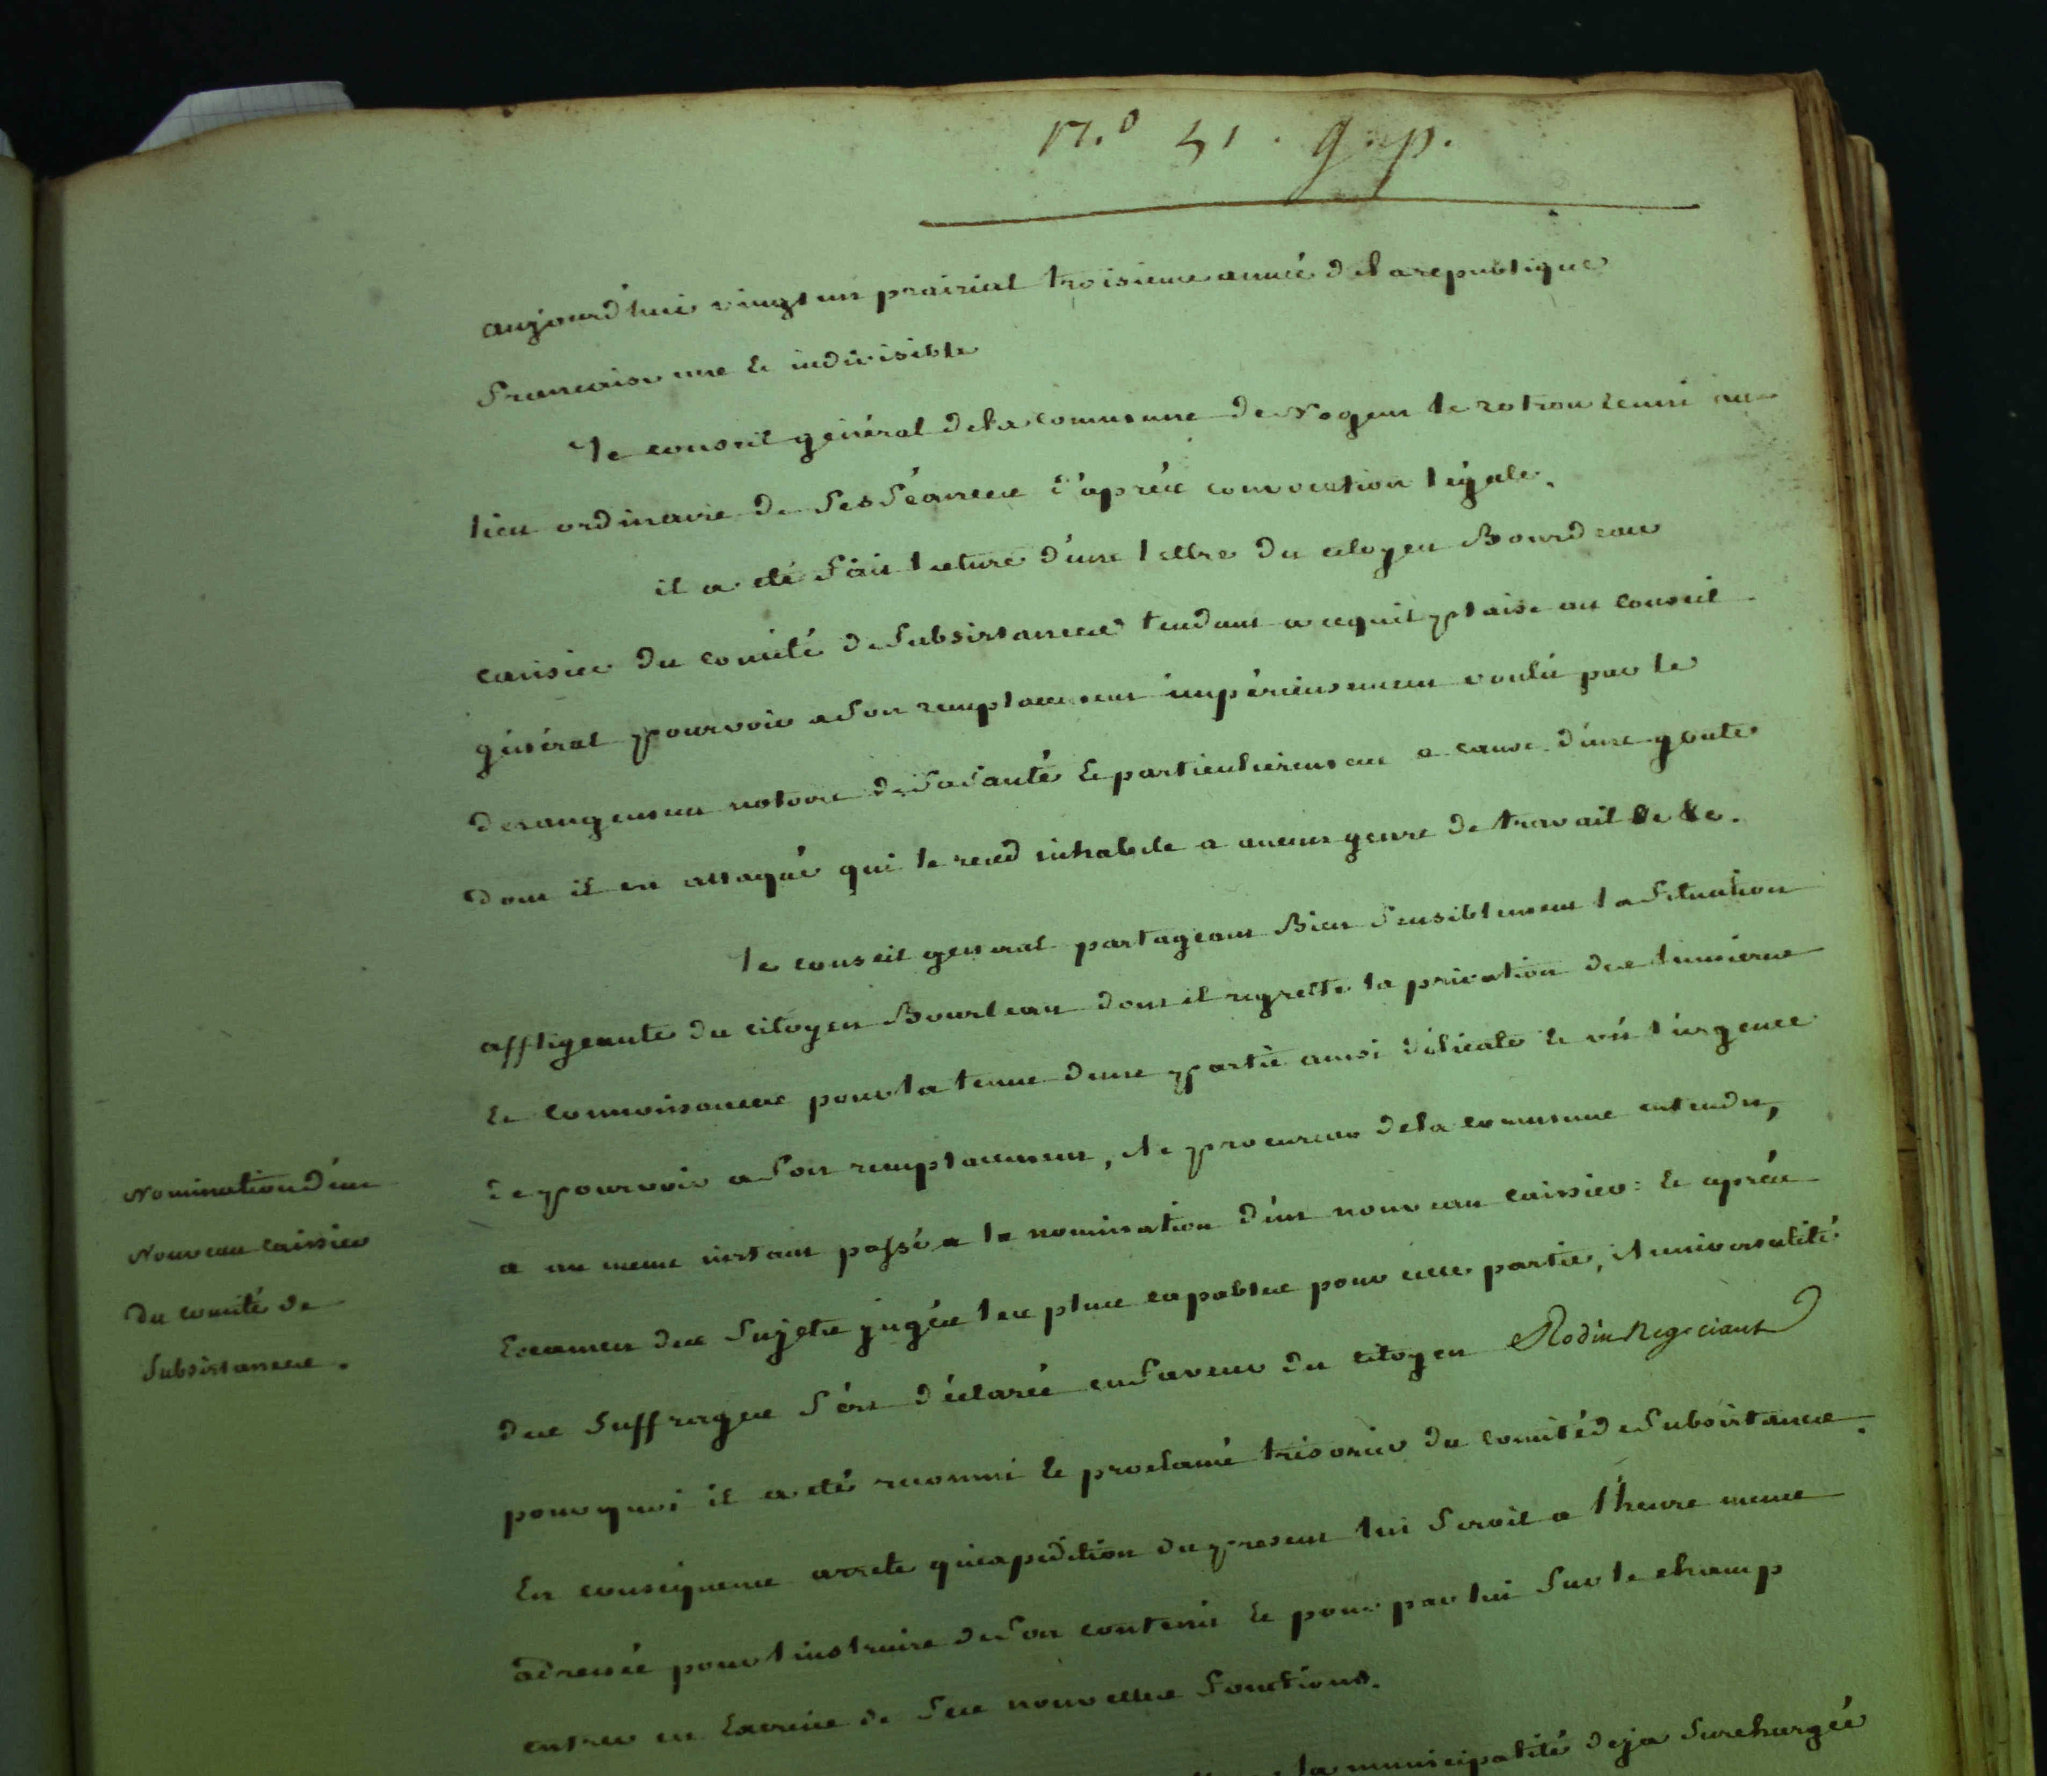 N.o 51. g. p.
aujourd'hui vingt un prairial troisieme année de la republique
francaise une et indivisible
Le conseil général de la commune de Nogent le rotrou réuni au
lieu ordinaire de ses séances d'après convocation légale.
il a été fait lecture d'une lettre du citoyen Bourdeau
caissier du comité de subsistances tendant a cequil plaise au conseil
général pourvoir a son remplacement impérieusement voulu par le
derangement notoire de sa santé et particulierement a cause d'une goute
dont il est attaqué qui le rend inhabile a aucun genre de travail &c &c.
le conseil general partageant Bien sensiblement la situation
affligeante du citoyen Bourdeau dont il regrette la privation des lumieres
et connoissances pour la tenue d'une partie aussi délicate et vû l'urgence
de pourvoir a son remplacement, le procureur de la commune entendu,
a au meme instant passé a la nomination d'un nouveau caissier: et après
Examen des sujets jugés les plus capables pour cette partie, l'universalité
des suffrages s'est déclarée en faveur du citoyen Rodin Negociant
pourquoi il a été reconnu et proclamé trésorier du comité de subsistances.
En conséquence arrete qu'expédition du present lui seroit a l'heure meme
adressée pour l'instruire de son contenu et pour par lui sur le champ
entrer en Exercice de ses nouvelles fonctions.
la municipalité deja surchargée
Nomination d'un
Nouveau caissier
du comité de
subsistances.